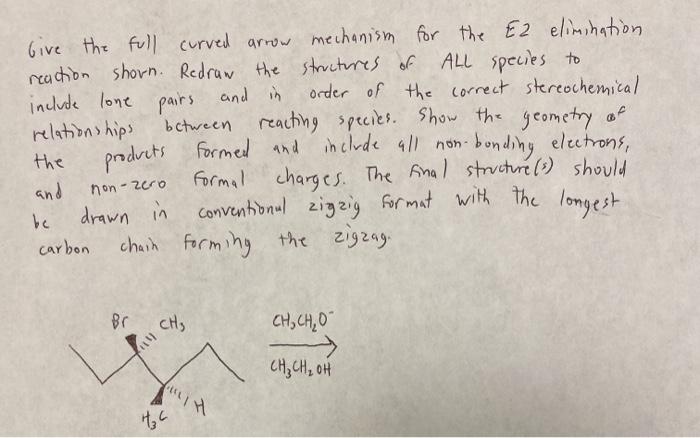 Give the full curved arrow mechanism for the E2 elimination
reaction shown. Redraw the structures of ALL species to
include lone pairs and in order of the correct stereochemical
relationships between reacting species. Show the geometry of
the products formed and include all non-bonding electrons,
and non-zero formal charges. The final structure(s) should
be drawn in conventional zigzig format with the longest
carbon chain forming the zigzag.
Br CH₃ CH₃CH₂O⁻
CH₃CH₂OH
H₃C H